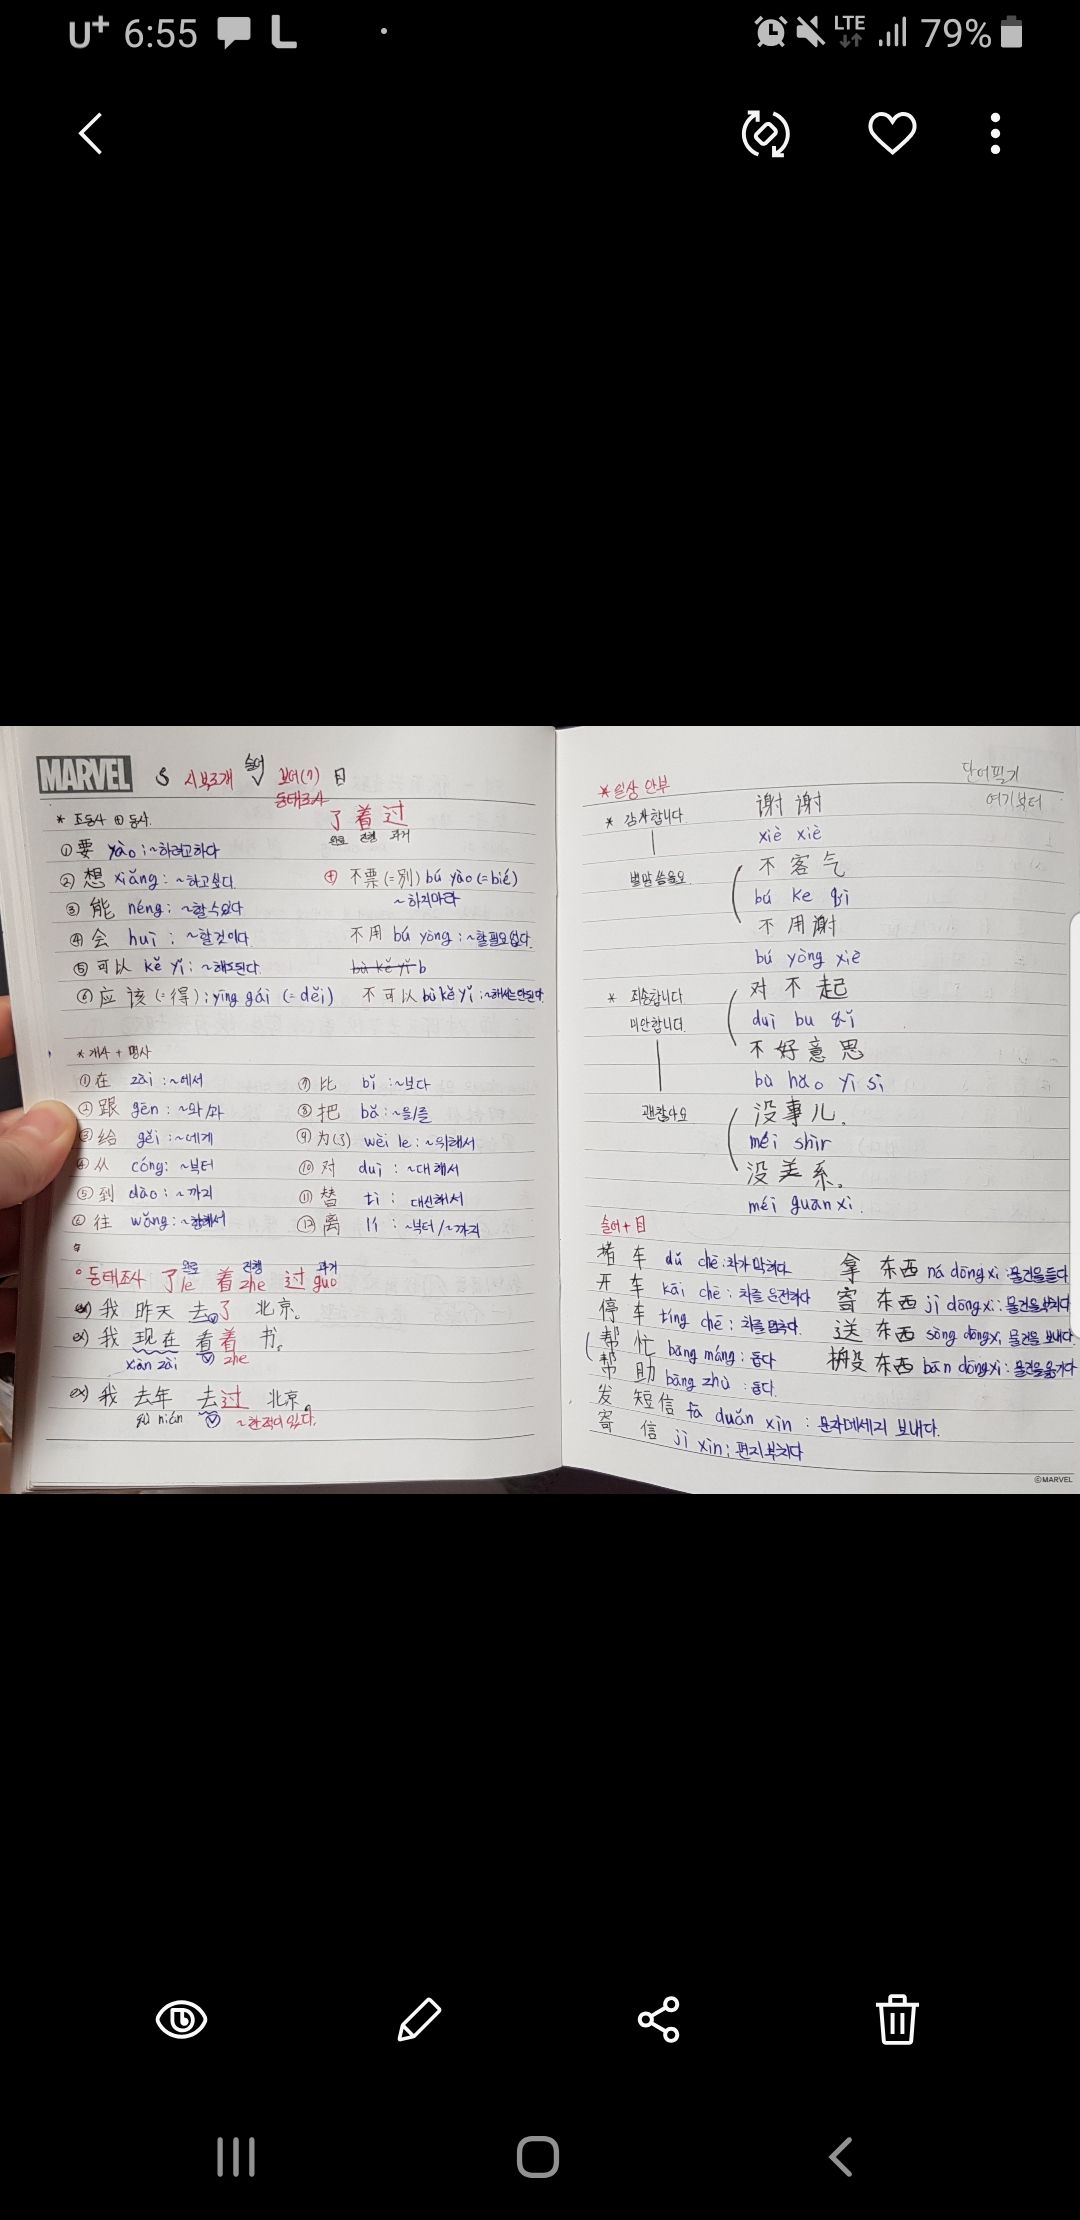 U+ 6:55 LTE 79%
MARVEL S 시부조개 술어 보어(기) 目
동태조사
* 조동사 ⊕ 동사.
了 着 过
완료 진행 과거
① 要 yào : ~하려고하다
② 想 xiǎng : ~하고싶다.
③ 能 néng : ~할수있다
④ 会 huì : ~할것이다.
⑤ 可以 kě yǐ : ~해도된다.
⑥ 应该 (=得) : yīng gāi (= děi)
⊕ 不票 (=别) bú yào (= bié)
~하지마라
不用 bú yòng : ~할필요없다.
bù kě yǐ b
不可以 bù kě yǐ : ~해서는안된다.
* 개사 + 명사
① 在 zài : ~에서
② 跟 gēn : ~와/과
③ 给 gěi : ~에게
④ 从 cóng : ~부터
⑤ 到 dào : ~까지
⑥ 往 wǎng : ~향해서
⑦ 比 bǐ : ~보다
⑧ 把 bǎ : ~을/를
⑨ 为(了) wèi le : ~위해서
⑩ 对 duì : ~대해서
⑪ 替 tì : 대신해서
⑫ 离 lí : ~부터/~까지
동태조사 了 le 완료 着 zhe 진행 过 guo 과거
ex) 我 昨天 去了 北京。
ex) 我 现在 看着 书。
xiàn zài zhe
ex) 我 去年 去过 北京。
qù nián ~한적이있다.
단어필기
여기부터
* 일상 안부
* 감사합니다 谢谢
xiè xiè
별말씀을요 不客气
bú ke qì
不用谢
bú yòng xiè
* 죄송합니다 对不起
미안합니다. duì bu qǐ
不好意思
bù hǎo yì si
괜찮아요 没事儿.
méi shìr
没关系.
méi guan xi.
술어 + 目
堵车 dǔ chē : 차가 막히다.
开车 kāi chē : 차를 운전하다
停车 tíng chē : 차를 멈추다.
帮忙 bāng máng : 돕다
帮助 bāng zhù : 돕다.
发短信 fā duǎn xìn : 문자메세지 보내다.
寄信 jì xìn : 편지부치다
拿东西 ná dōng xi : 물건을들다
寄东西 jì dōng xi : 물건을부치다
送东西 sòng dōng xi, 물건을 보내다.
东西 bān dōng xi : 물건을옮기다
©MARVEL